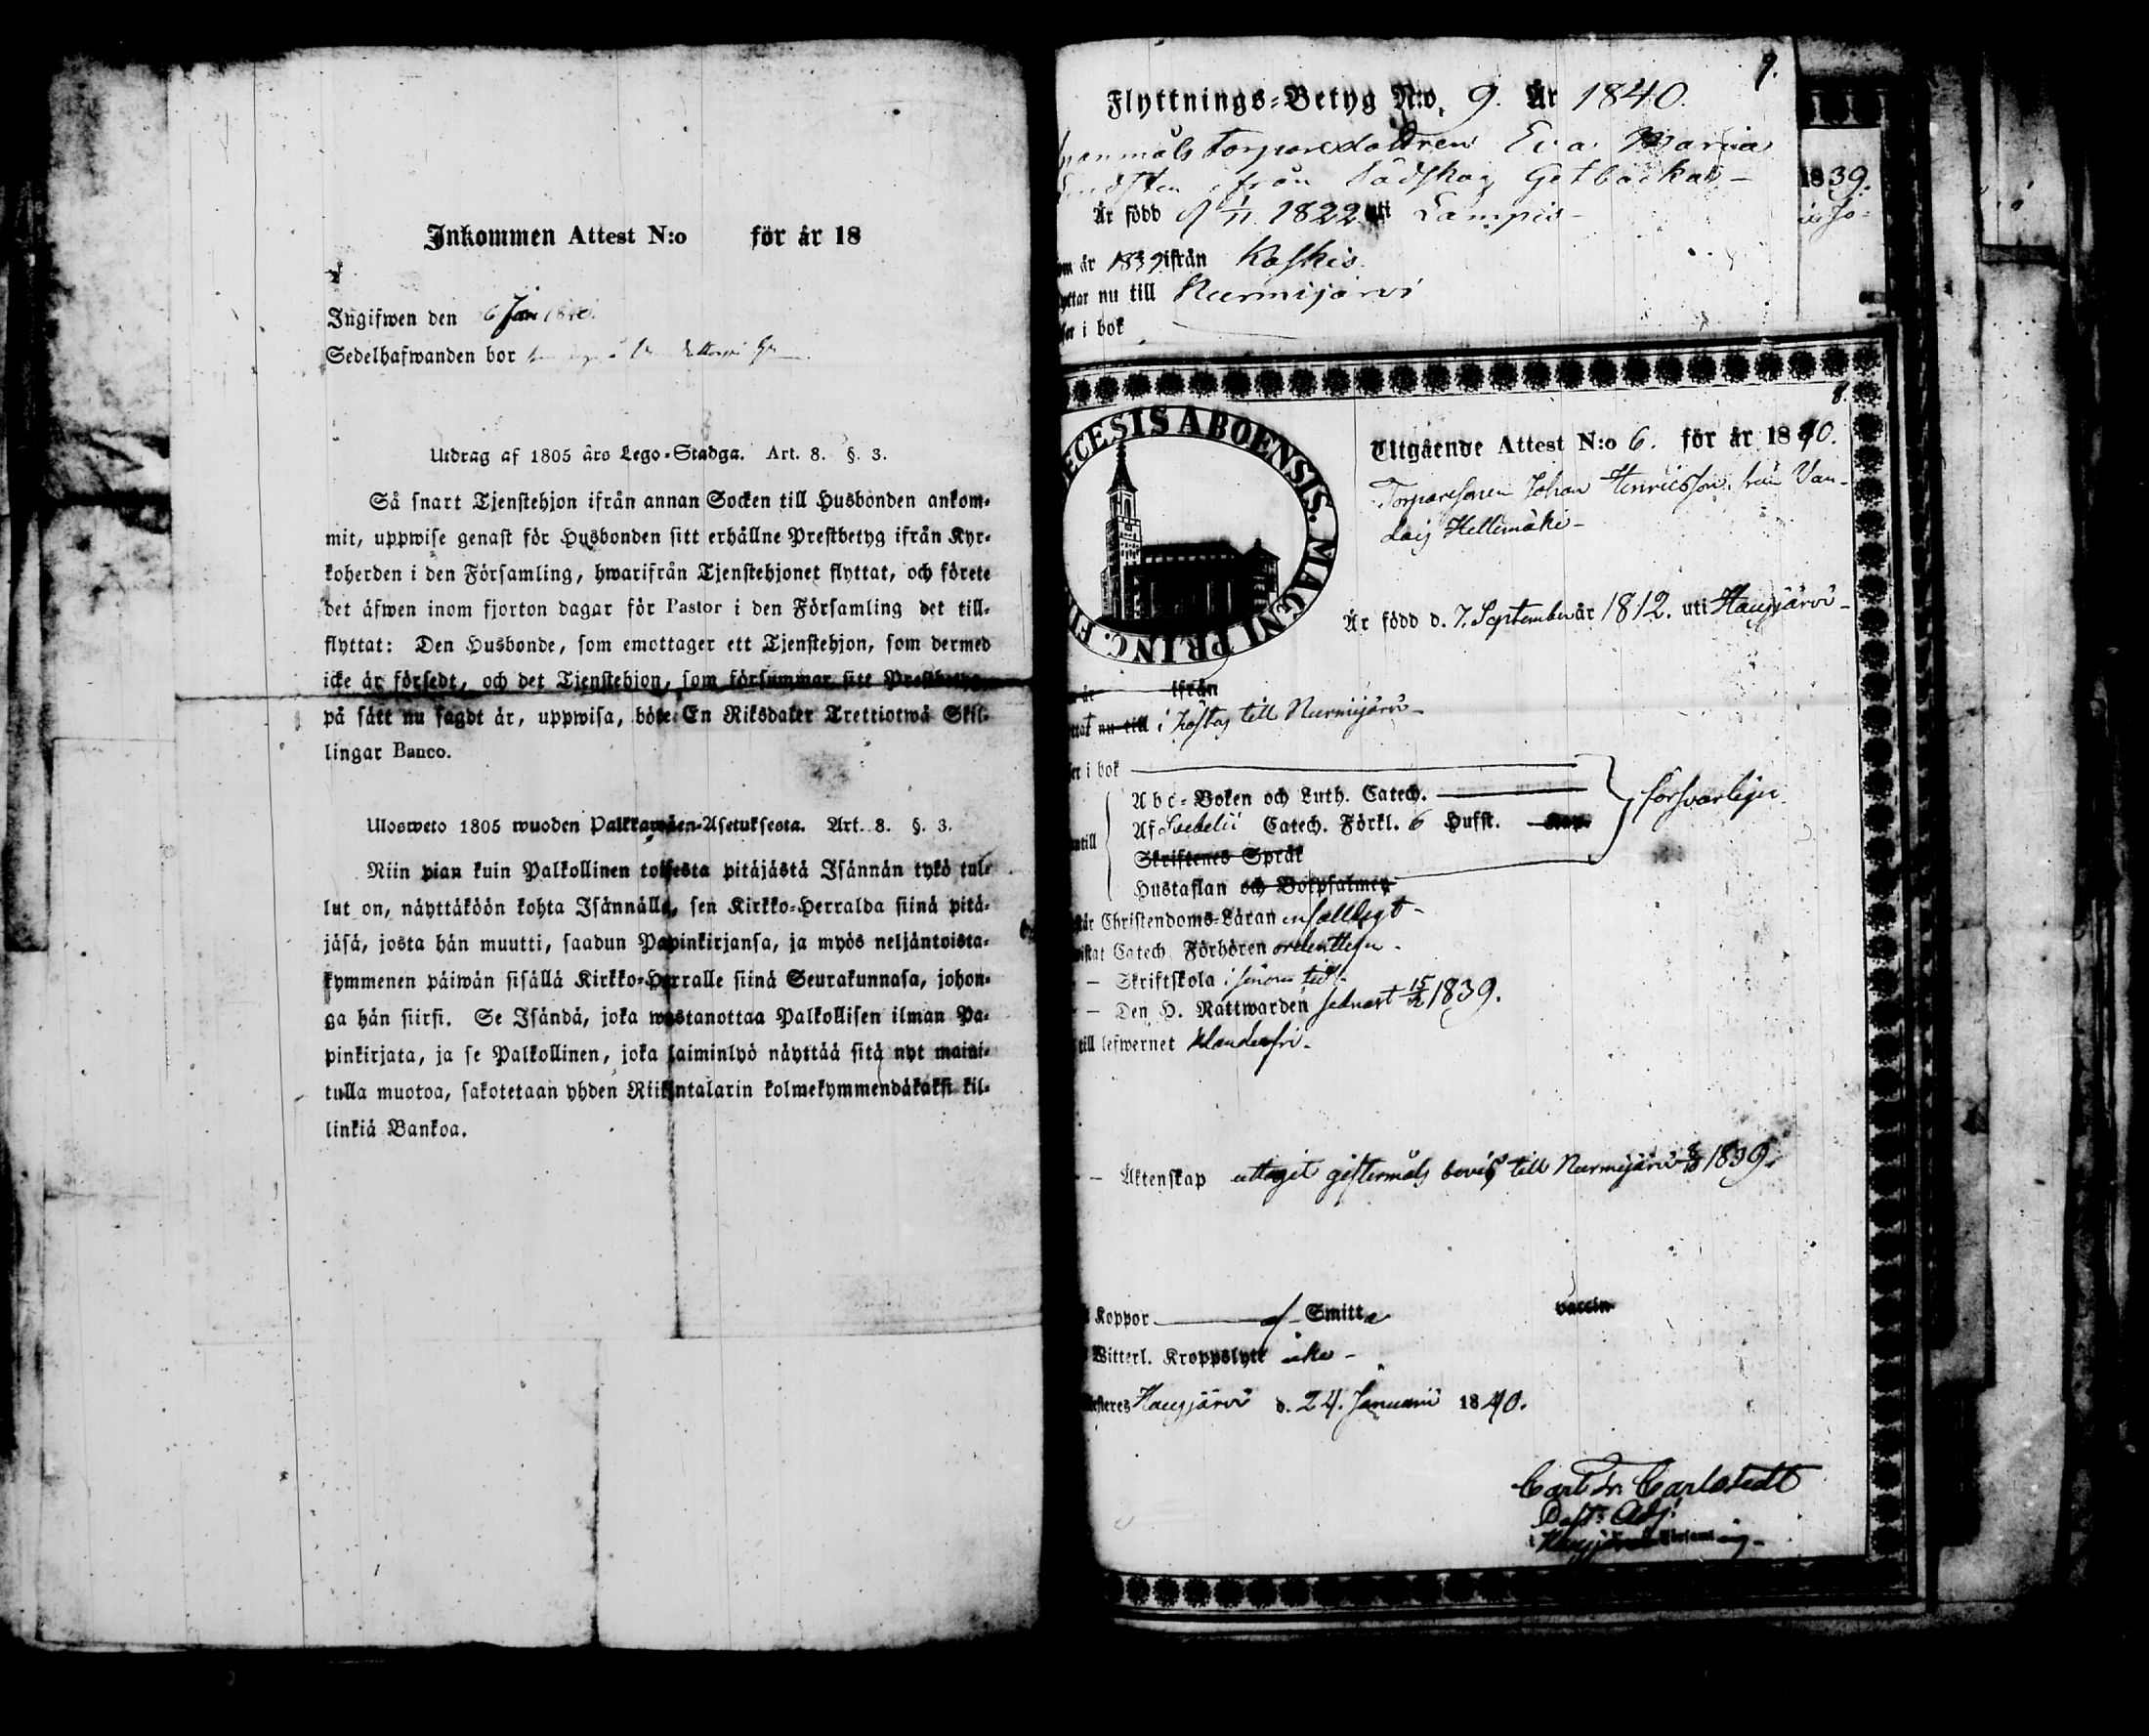 Inkommen Attest N:o för år 18
Ingifwen den 6 Jan 1840.
Sedelhafwanden bor
Utdrag af 1805 års Lego-Stadga. Art. 8. §. 3.
Så snart Tjenstehjon ifrån annan Socken till Husbonden ankom-
mit, uppwise genast för Husbonden sitt erhållne Prestbetyg ifrån Kyr-
koherden i den Församling, hwarifrån Tjenstehjonet flyttat, och förete
det äfwen inom fjorton dagar för Pastor i den Församling det till-
flyttat: Den Husbonde, som emottager ett Tjenstehjon, som dermed
icke är försedt, och det Tjenstehjon, som försummar sitt Prestbetyg
på sätt nu sagdt är, uppwisa, böte En Riksdaler Trettiotwå Skil-
lingar Banco.
Ulosweto 1805 wuoden Palkkawäen-Asetuksesta. Art. 8. §. 3.
Niin pian kuin Palkollinen toisesta pitäjästä Isännän tykö tul-
lut on, näyttäköön kohta Isännälle, sen Kirkko-Herralda siinä pitä-
jäsä, josta hän muutti, saadun Papinkirjansa, ja myös neljäntoista-
kymmenen päiwän sisällä Kirkko-Herralle siinä Seurakunnasa, johon-
ga hän siirsi. Se Isändä, joka wastanottaa Palkollisen ilman Pa-
pinkirjata, ja se Palkollinen, joka laiminlyö näyttää sitä nyt maini-
tulla muotoa, sakotetaan yhden Riikintalarin kolmekymmendäkaksi kil-
linkiä Bankoa.
9.
Flyttnings-Betyg N:o 9. År 1840.
Torparedottren Eva Maria
ifrån Getbackas
Är född 9/11 1822 uti Lampis
om år 1839 ifrån Koskis
yttar nu till Nurmijärvi
ser i bok
1839.
8.
ECESIS ABOENSIS. MAGNI PRINC. FI
Utgående Attest N:o 6. för år 1840.
Torparesonen Johan Henricsson från Van-
dais Hellemäki
Är född d. 7. September år 1812. uti Hausjärvi
år ifrån
ttat nu till i höstas till Nurmijärvi
ser i bok
Abc-Boken och Luth. Catech. försvarligen
Af Svebelii Catech. Förkl. 6 Husst.
ntill
Skriftenes Språk
Hustaflan och Botpsalmer
står Christendoms-Läran enfalldigt
istat Catech. Förhören ordentligen
– Skriftskola i sinom tid
– Den H. Nattwarden sednast 15/12 1839.
till lefwernet klanderfri
– Äktenskap uttagit giftermåls bevis till Nurmijärvi 1839.
Koppor af Smitta vaccin
Witterl. Kroppslyte icke
steres Hausjärvi d. 24. Januarii 1840.
Carl Fr. Carlstedt
Past: Adj:
i Hausjärvi Församling